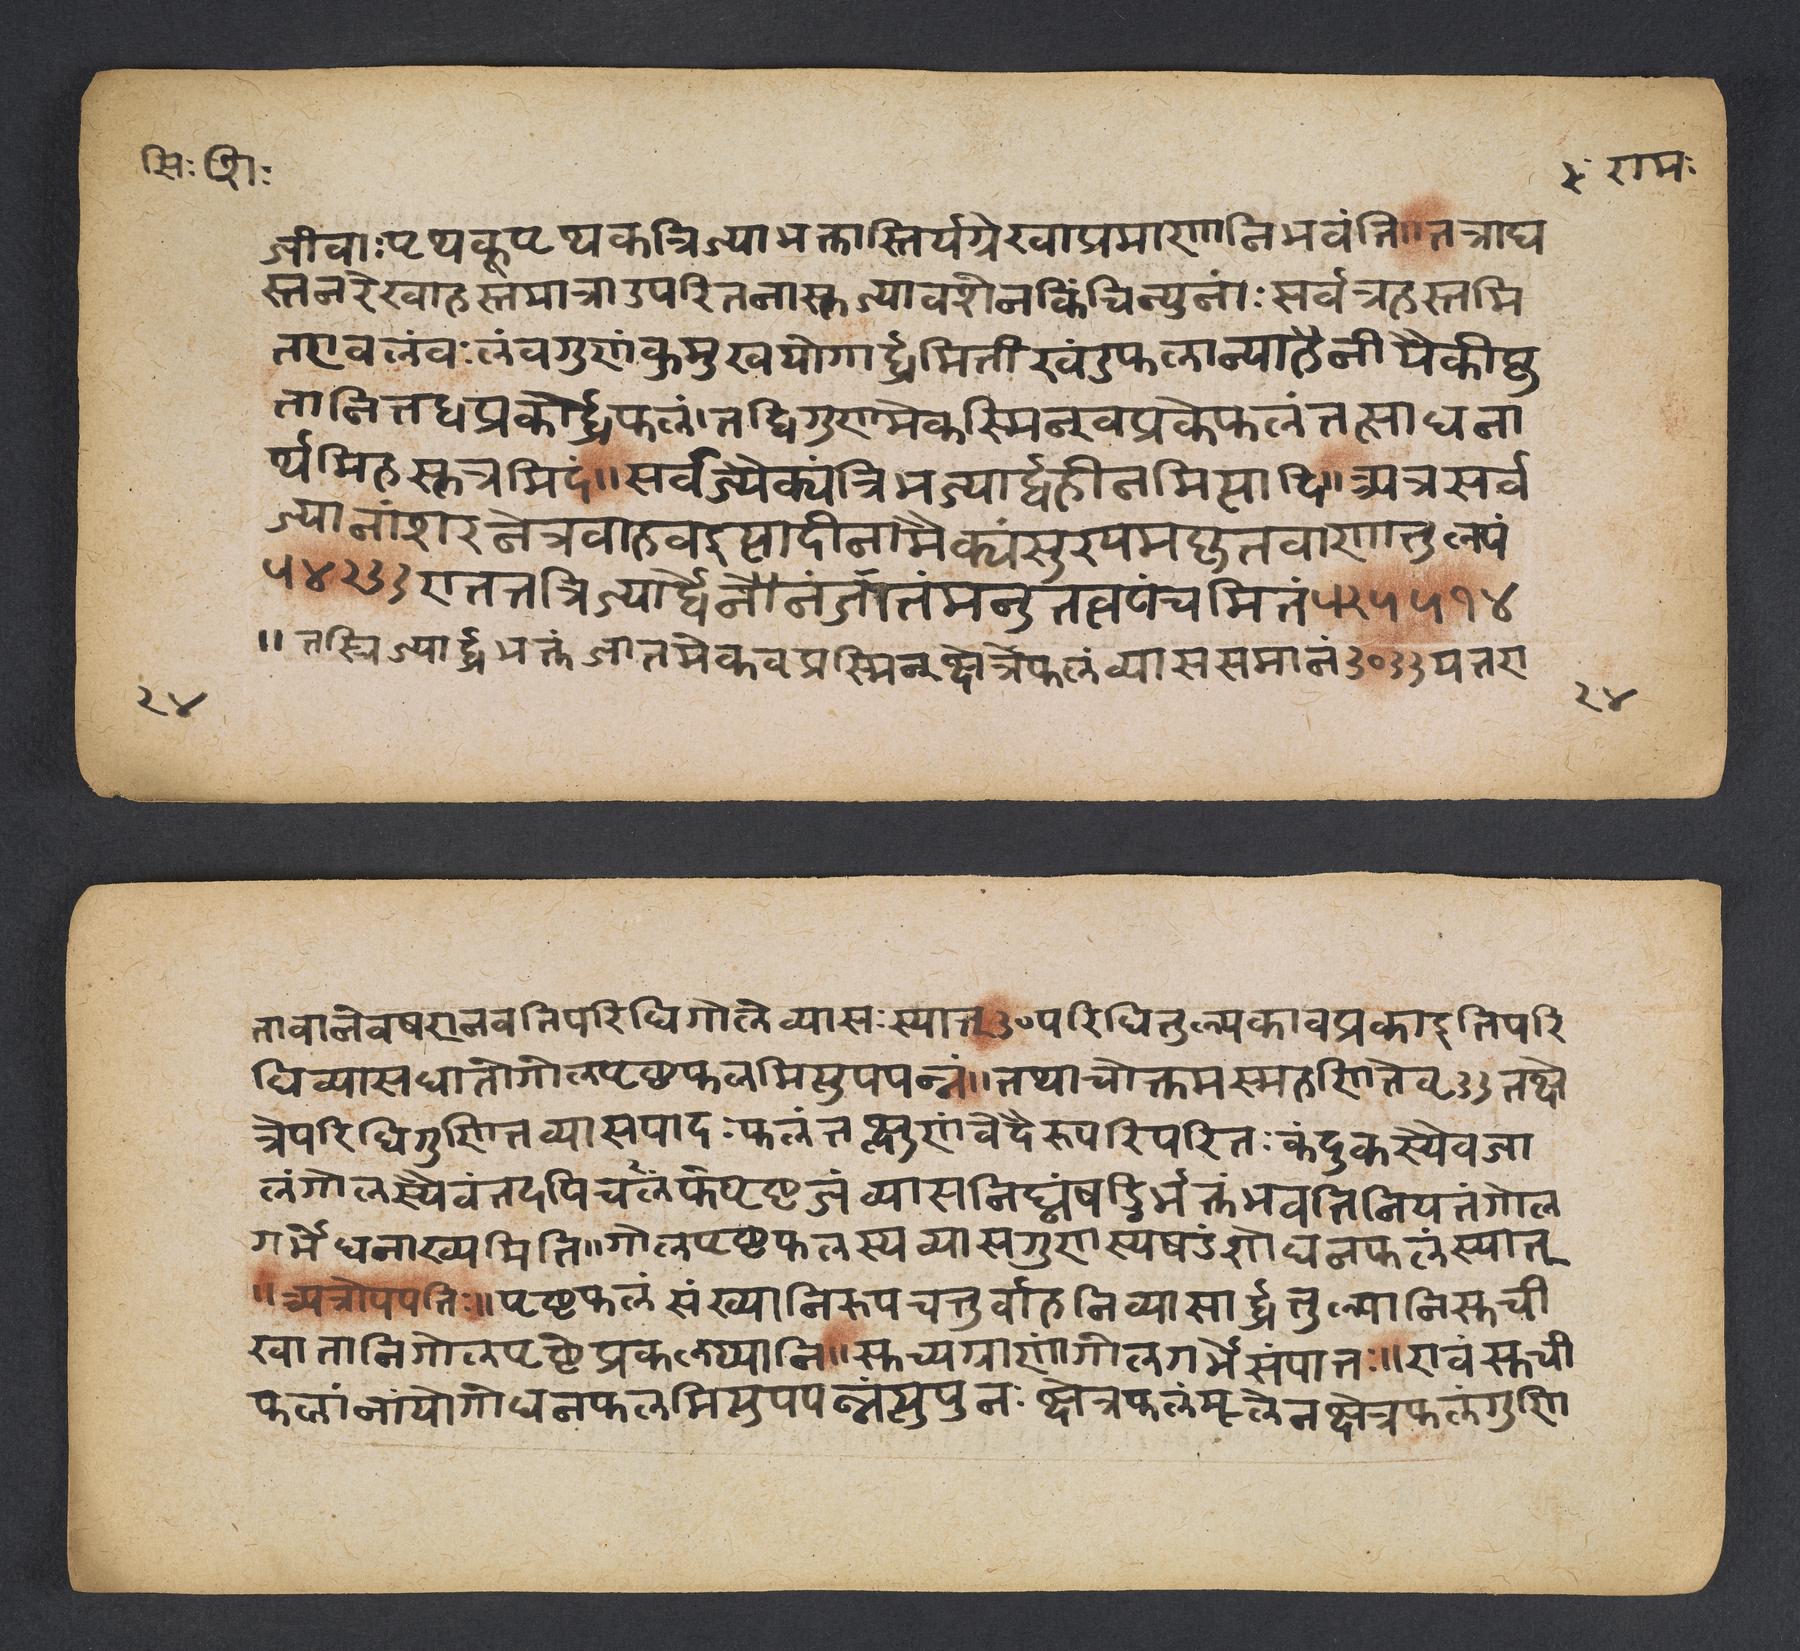 सिः शिः
४ रामः
जीवाः पृथक् पृथकत्रिज्याभक्तास्तिर्यग्रेखाप्रमाणानि भवंति॥ तत्राघ
स्तनरेखाहस्तमात्राउपरितनास्तज्यावशेन किंचिन्युनांः सर्वत्रहस्तमि
तएवलंवः लंवगुणं कुमुखयोगार्द्धमिती खंडफलान्या
तानि तधप्रकार्द्धफलं। तद्विगुणमेकस्मिन्वप्रकेफलं तत्साधना
र्थमिहसूत्रमिदं॥ सर्वज्यैक्यं त्रिभज्यार्द्धहीनमित्यादि॥ अत्र सर्व
ज्यानां शरनेत्रवाहव इत्यादीनामैक्यं सुरयमघृतवाणातुल्यं
५४२३३ एतत्त्रिज्यार्धेनोनं जातं मनु पंचमितं ५२५५१४
॥ तस्त्रिज्यार्द्धभक्तं जातमेकवप्रस्मिन् क्षेत्रेफलं व्याससमानं ३०३३ यतए
२४
२४
तावानेवषएानवतिपरिधिगोले व्यासः स्यात् ३० परिधितुल्यकावप्रकाइतिपरि
धिव्यासघातोगोलपृष्ठफलमित्युपपन्नं॥ तथाचोक्तमस्महणितेव ३३ तक्षे
त्रेपरिधिगुणितव्यासपादः फलं तत्क्षुणं वेदैरूपरिपरितः कंदुकस्यैवजा
लं गोलस्यैवं तदपि चलंफंपृष्टजं व्यासनिघ्नं षड्भिर्भक्तं भवति नियतं गोल
गर्भे घनाख्यमिति॥ गोलपृष्ठफलस्य व्यासगुणस्य षडंशो घनफलं स्यात्
॥ अत्रोपपत्तिः॥ पृष्टफलं संख्यानिरूपचतुर्वाहनि व्यासार्द्धतुल्यानि स्तची
खातानि गोलपृष्ठेप्रकल्प्यानि॥ स्तच्यग्राणां गोलगर्भे संपातः॥ एवं स्तची
फलांनां योगो घनफलमित्युपपन्नं पुनः क्षेत्रफलं मूलेन क्षेत्रफलं गुणि